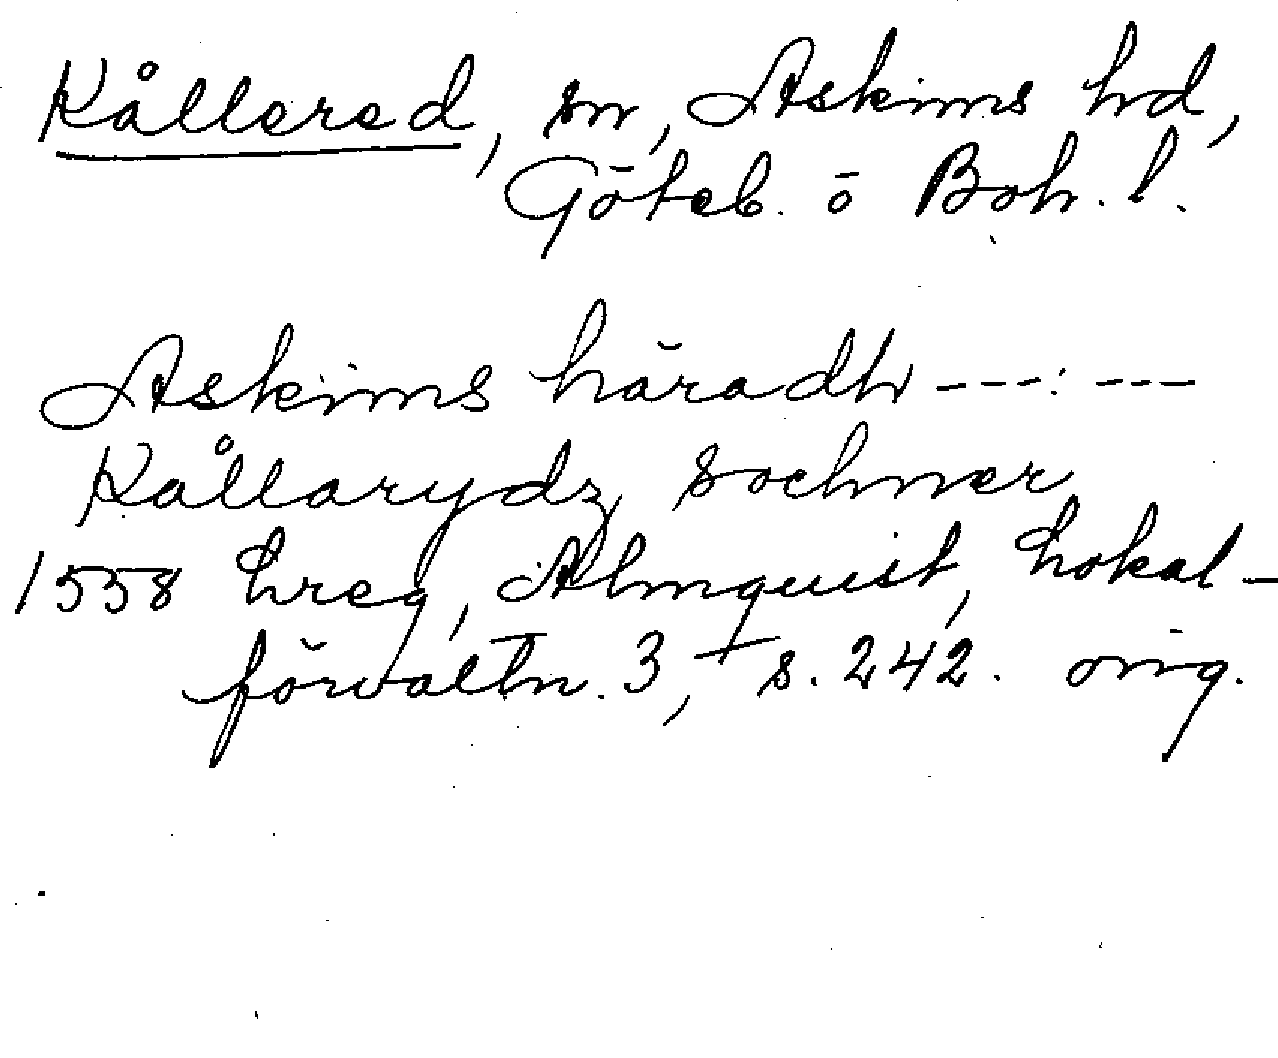 Kållered, sn, Askims hd,
Göteb. o Boh. l.
Askims häradh ---: ---
Kållarydz sochner
1558 hreg, Almquist, Lokal-
förvaltn. 3, s. 242. orig.